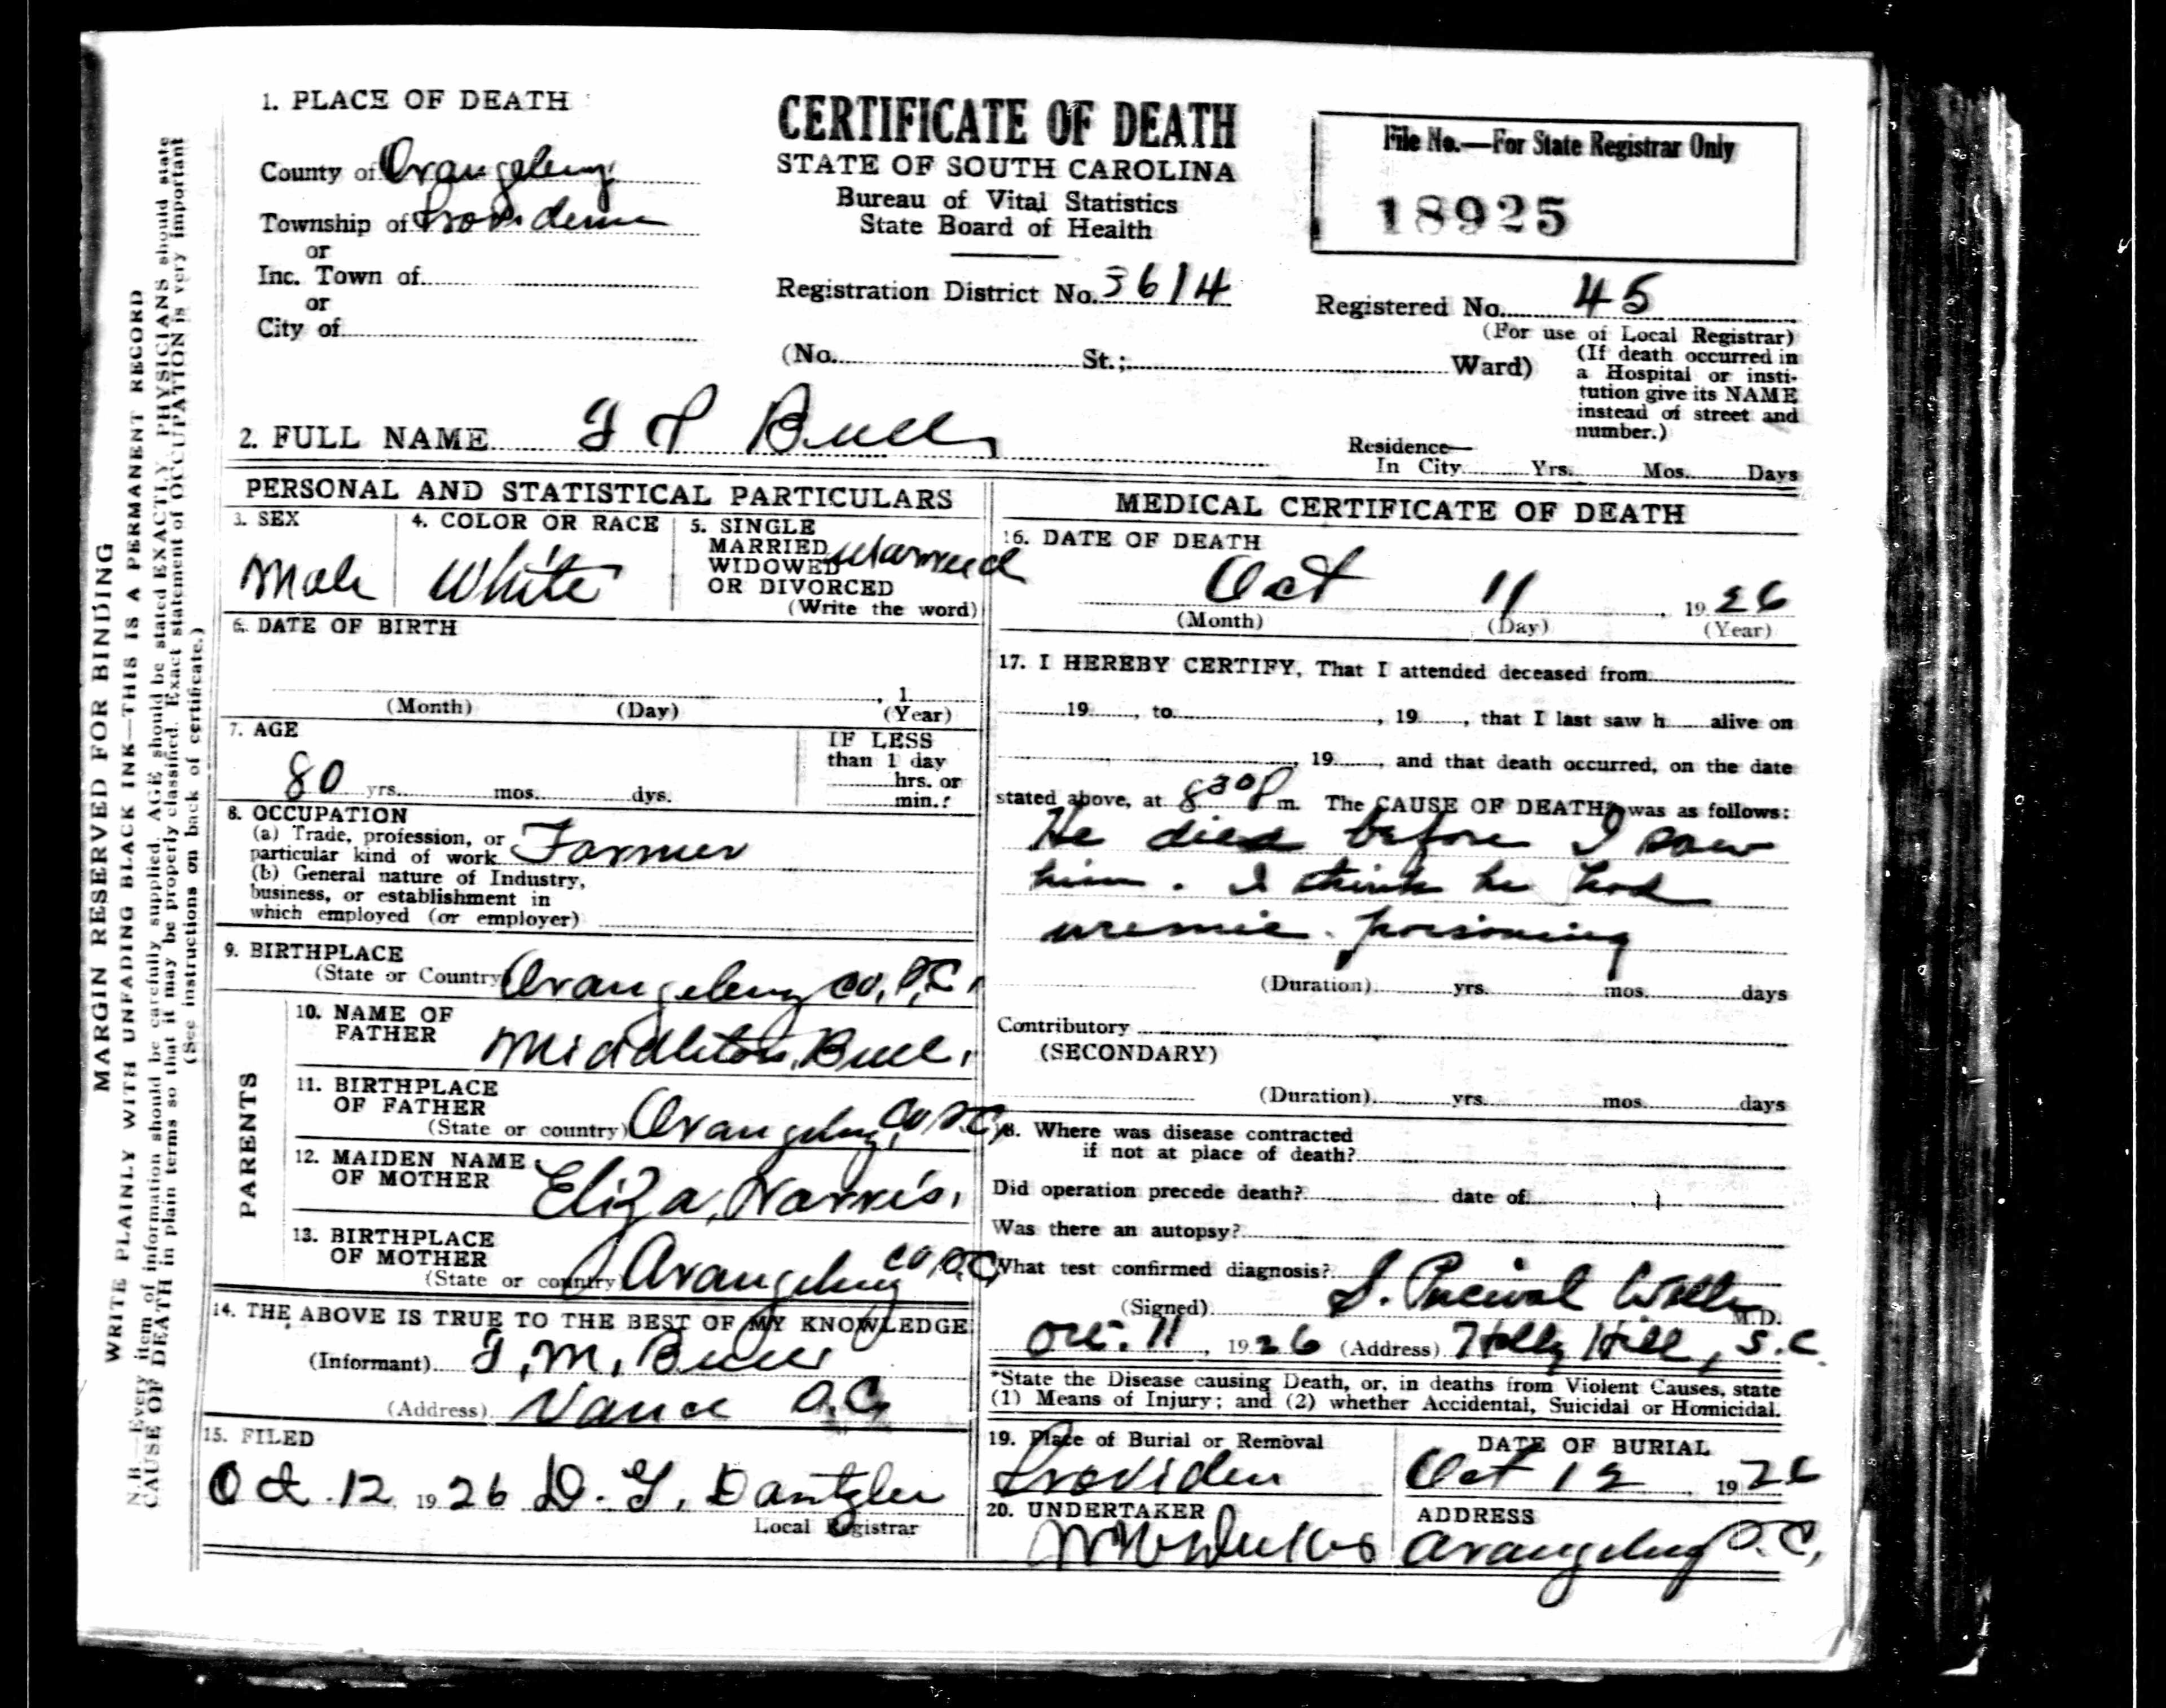 1. PLACE OF DEATH
County of Orangeburg
Township of Providence
or
Inc. Town of
or
City of
CERTIFICATE OF DEATH
STATE OF SOUTH CAROLINA
Bureau of Vital Statistics
State Board of Health
Registration District No. 3614
(No. St.; Ward)
File No.—For State Registrar Only
18925
Registered No. 45
(For use of Local Registrar)
(If death occurred in
a Hospital or insti-
tution give its NAME
instead of street and
number.)
2. FULL NAME Bull
Residence—
In City Yrs. Mos. Days
PERSONAL AND STATISTICAL PARTICULARS
3. SEX
Male
4. COLOR OR RACE
White
5. SINGLE
MARRIED
WIDOWED
OR DIVORCED
(Write the word)
6. DATE OF BIRTH
, 1
(Month) (Day) (Year)
7. AGE
80 yrs. mos. dys.
IF LESS
than 1 day
hrs. or
min.?
8. OCCUPATION
(a) Trade, profession, or
particular kind of work Farmer
(b) General nature of Industry,
business, or establishment in
which employed (or employer)
9. BIRTHPLACE
(State or Country) Orangeburg Co, S.C.
PARENTS
10. NAME OF
FATHER Middleton Bull.
11. BIRTHPLACE
OF FATHER
(State or country) Orangeburg Co S.C.
12. MAIDEN NAME
OF MOTHER Eliza
13. BIRTHPLACE
OF MOTHER
(State or country) Orangeburg Co, S.C.
14. THE ABOVE IS TRUE TO THE BEST OF MY KNOWLEDGE
(Informant) M. Bull
(Address) Vance S.C.
15. FILED
Oct. 12, 1926 D. Dantzler
Local Registrar
MEDICAL CERTIFICATE OF DEATH
16. DATE OF DEATH
Oct 11, 1926
(Month) (Day) (Year)
17. I HEREBY CERTIFY, That I attended deceased from
19 , to , 19 , that I last saw h alive on
, 19 , and that death occurred, on the date
stated above, at 830 P m. The CAUSE OF DEATH* was as follows:
He died before I saw
him. I think he had
uremic poisoning
(Duration) yrs. mos. days
Contributory
(SECONDARY)
(Duration) yrs. mos. days
18. Where was disease contracted
if not at place of death?
Did operation precede death? date of
Was there an autopsy?
What test confirmed diagnosis?
(Signed) S. Percival M.D.
Oct. 11, 1926 (Address) Holly Hill, S.C.
*State the Disease causing Death, or, in deaths from Violent Causes, state
(1) Means of Injury; and (2) whether Accidental, Suicidal or Homicidal.
19. Place of Burial or Removal
DATE OF BURIAL
Oct 12, 1926
20. UNDERTAKER
Dukes
ADDRESS
Orangeburg S.C.
MARGIN RESERVED FOR BINDING
WRITE PLAINLY WITH UNFADING BLACK INK—THIS IS A PERMANENT RECORD
N.B.—Every item of information should be carefully supplied. AGE should be stated EXACTLY. PHYSICIANS should state
CAUSE OF DEATH in plain terms so that it may be properly classified. Exact statement of OCCUPATION is very important
(See instructions on back of certificate.)